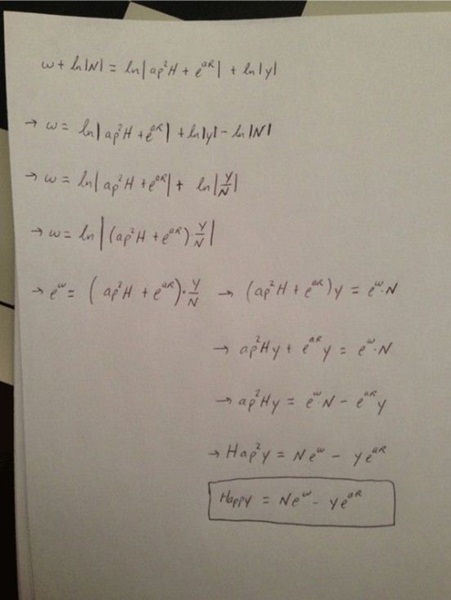 w + ln|N| = ln|ap²H + e^{aR}| + ln|y|
→ w = ln|ap²H + e^{aR}| + ln|y| - ln|N|
→ w = ln|ap²H + e^{aR}| + ln|y/N|
→ w = ln|(ap²H + e^{aR}) y/N|
→ e^w = (ap²H + e^{aR}) · y/N → (ap²H + e^{aR}) y = e^w · N
→ ap²Hy + e^{aR} y = e^w · N
→ ap²Hy = e^w · N - e^{aR} y
→ Hap²y = Ne^w - ye^{aR}
Happy = Ne^w - ye^{aR}